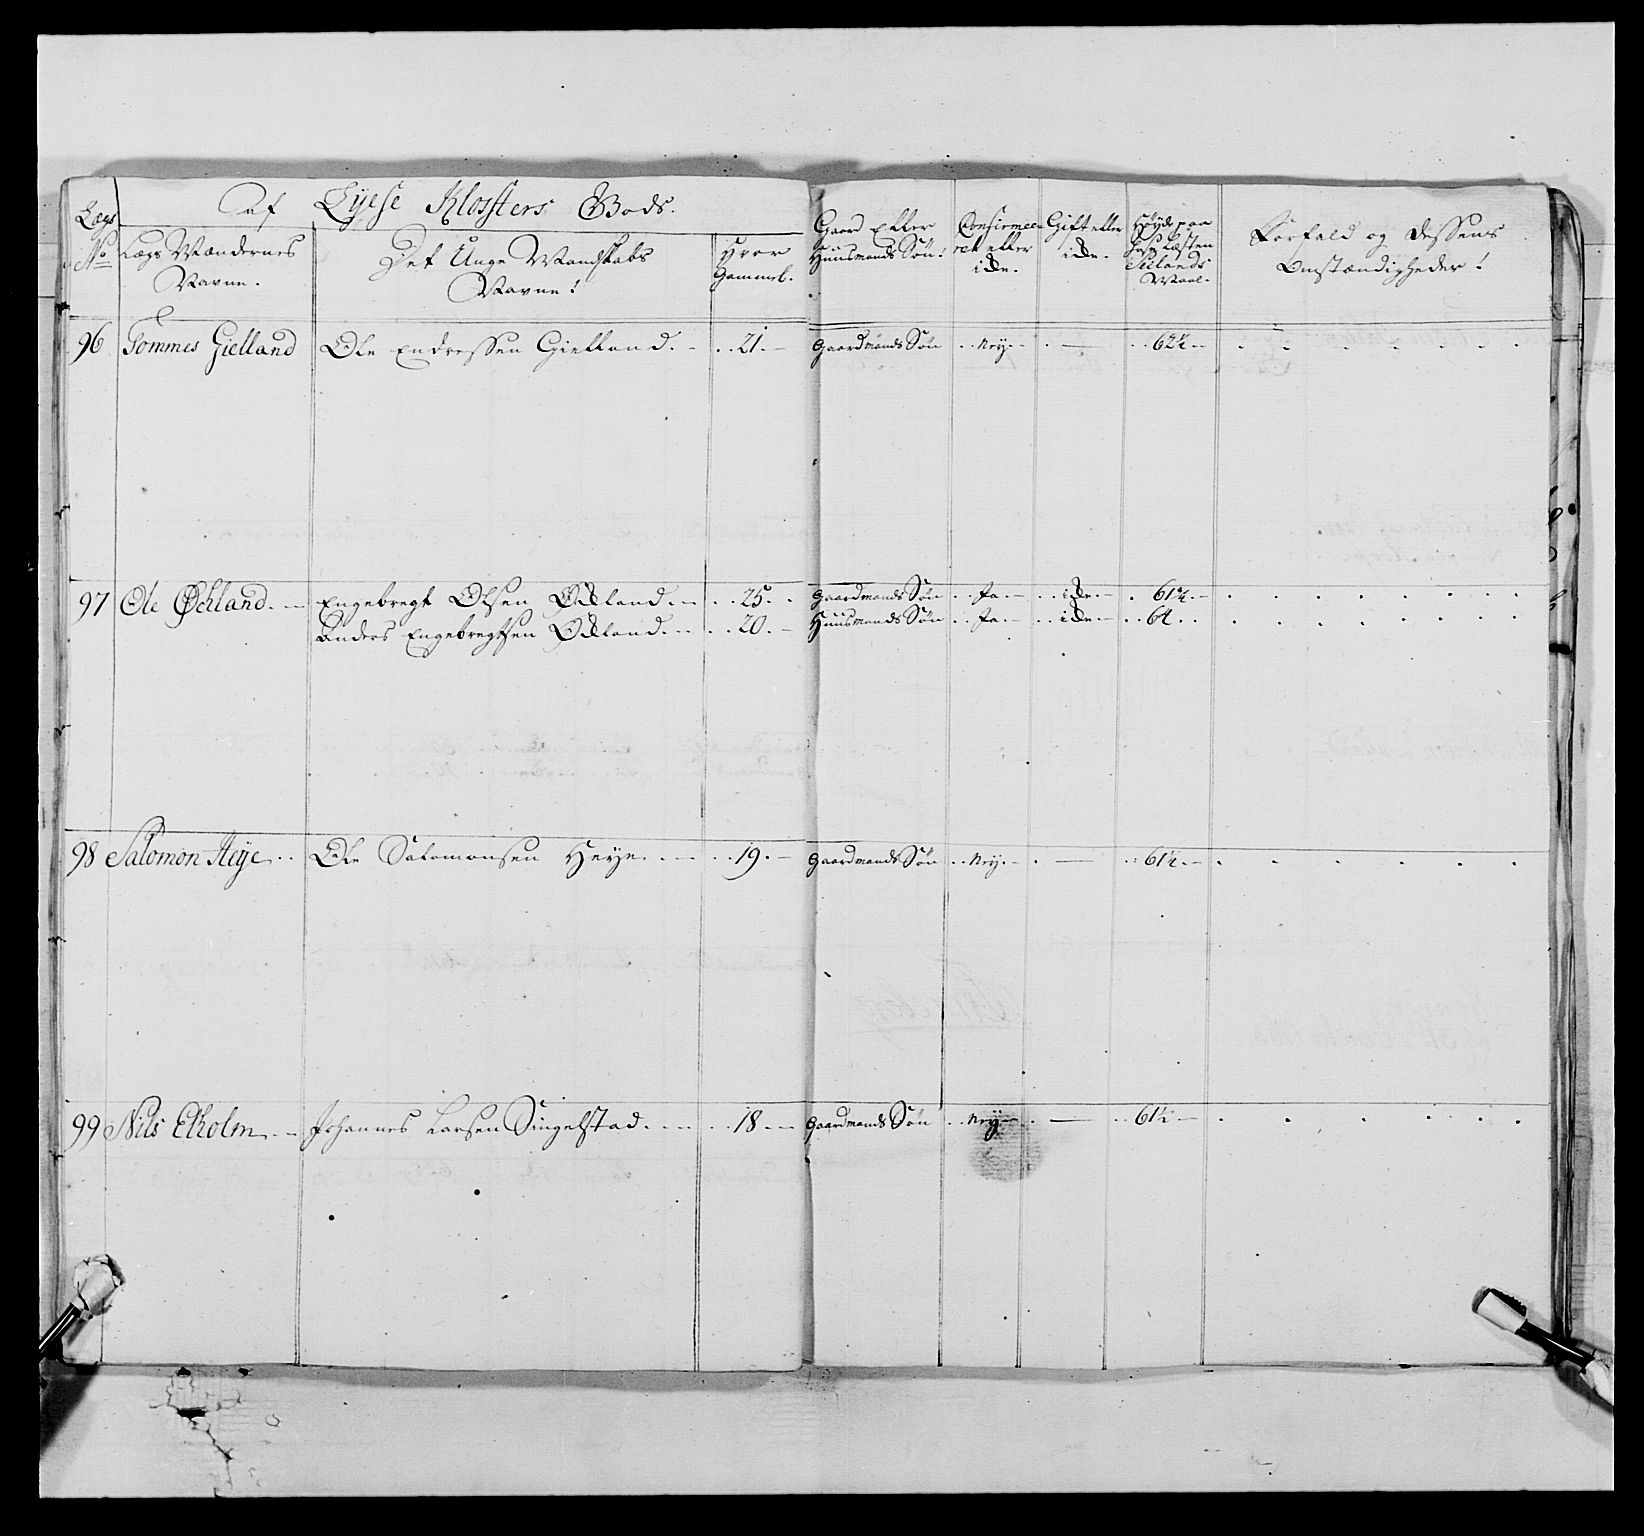 af Lyese Klosters Gods.
Lægs No
Lægs Mændernes Navne.
Det Unge Mandskabs Navne!
Hvor Gammel.
Gaard eller Huusmands Søn!
Confirmeeret eller icke.
Gift eller icke.
Høyde paa Hoselæsten Siellands Maal.
Forfald og dessens Omstændigheder!
96 Tommes Gielland Ole Endressen Gielland. 21. Gaardmands Søn Ney. — 62½
97 Ole Ødland. Engebregt Olsen Ødland. 25. Gaardmands Søn Ja. icke. 61¾
Anders Engebregtsen Ødland. 20. Huusmands Søn Ja. icke. 64.
98 Salomon Heye Ole Salomonsen Heye. 19. Gaardmands Søn Ney. — 61½
99 Nils Eikolm Johannes Larsen Singelstad. 18 Gaardmands Søn Ney. — 61½